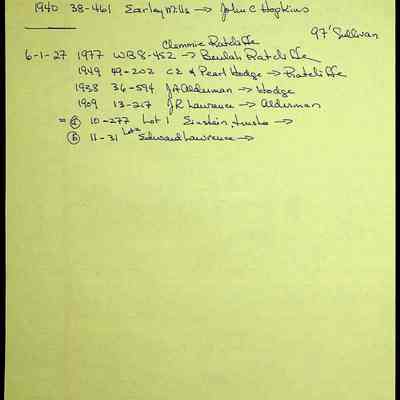 1940 38-461 Earley Mills → John C Hopkins
97' Sullivan
Clemmie Ratcliffe
6-1-27 1977 WB8-452 → Beulah Ratcliffe
1949 49-202 CE & Pearl Hodge → Ratcliffe
1938 36-594 JA Alderman → Hodge
1909 13-217 JR Lawrance → Alderman
= ⓐ 10-277 Lot 1 Einstein, →
ⓑ 11-31 Lot 2 Edward Lawrence →